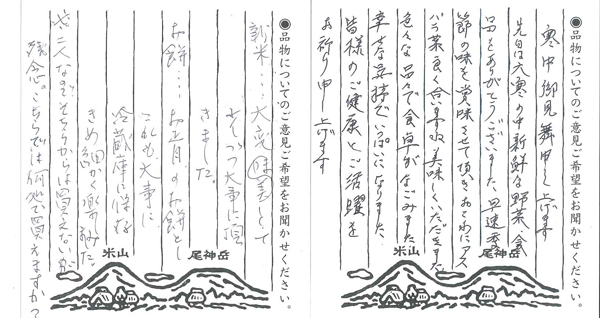 ●品物についてのご意見ご希望をお聞かせください。
寒中御見舞申し上げます
先日は大寒の中新鮮な野菜、食
品をありがとうございました。早速季
節の味を賞味させて頂き、
バラ菜良く合いますね美味しくいただきました
色々な品々で食卓がなごみました
幸せな気持でいっぱいになりました。
皆様のご健康とご活躍を
お祈り申し上げます
米山
尾神岳
●品物についてのご意見ご希望をお聞かせください。
新米・・・大変美味しくて
少しづつ大事に頂
きました。
お餅・・・お正月のお餅とし
これも大事に
冷蔵庫に保存
きめ細かく
残念。こちらでは何処で買えますか？
米山
尾神岳